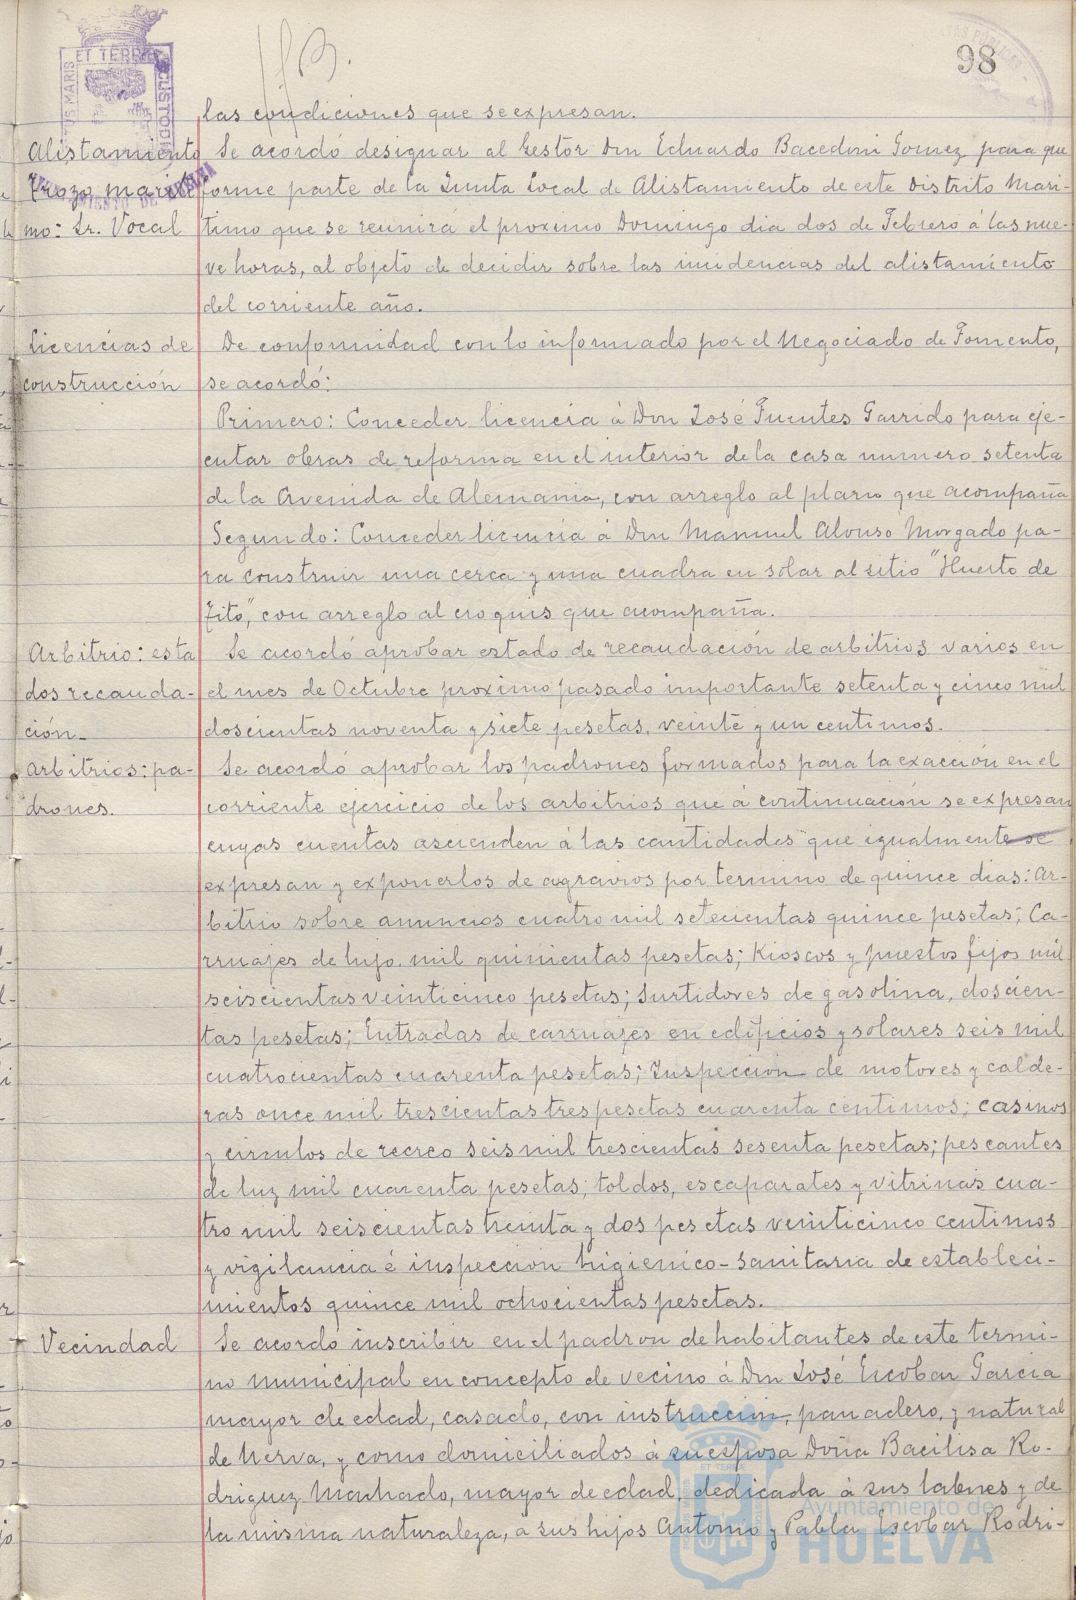 98
las condiciones que se expresan.
Alistamiento Se acordó designar al Gestor Don Eduardo Bacedoni Gomez para que
Trozo mariti forme parte de la Junta Local de Alistamiento de este Distrito Mari-
mo: Sr. Vocal timo que se reunirá el proximo Domingo dia dos de Febrero á las nue-
ve horas, al objeto de decidir sobre las incidencias del alistamiento
del corriente año.
Licencias de De conformidad con lo informado por el Negociado de Fomento,
construcción se acordó:
Primero: Conceder licencia á Don José Fuentes Garrido para eje-
cutar obras de reforma en el interior de la casa numero setenta
de la Avenida de Alemania, con arreglo al plano que acompaña
Segundo: Conceder licencia á Don Manuel Alonso Morgado pa-
ra construir una cerca y una cuadra en solar al sitio "Huerto de
Tito", con arreglo al croquis que acompaña.
Arbitrio: esta Se acordó aprobar estado de recaudación de arbitrios varios en
dos recauda- el mes de Octubre proximo pasado importante setenta y cinco mil
ción- doscientas noventa y siete pesetas, veinte y un centimos.
Arbitrios: pa- Se acordó aprobar los padrones formados para la exacción en el
drones. corriente ejercicio de los arbitrios que á continuación se expresan
cuyas cuentas ascienden á las cantidades que igualmente se
expresan y exponerlos de agravios por termino de quince dias: Ar-
bitrio sobre anuncios cuatro mil setecientas quince pesetas; Ca-
rruajes de lujo, mil quinientas pesetas; Kioscos y puestos fijos mil
seiscientas veinticinco pesetas; Surtidores de gasolina, doscien-
tas pesetas; Entradas de carruajes en edificios y solares seis mil
cuatrocientas cuarenta pesetas; Inspección de motores y calde-
ras once mil trescientas tres pesetas cuarenta centimos; casinos
y circulos de recreo seis mil trescientas sesenta pesetas; pescantes
de luz mil cuarenta pesetas; toldos, escaparates y vitrinas cua-
tro mil seiscientas treinta y dos pesetas veinticinco centimos
y vigilancia é inspección higienico-sanitaria de estableci-
mientos quince mil ochocientas pesetas.
Vecindad Se acordó inscribir en el padron de habitantes de este termi-
no municipal en concepto de vecino á Don José Escobar Garcia
mayor de edad, casado, con instruccion, panadero, y natural
de Nerva, y como domiciliados á su esposa Doña Bacilisa Ro-
driguez Machado, mayor de edad, dedicada á sus labores y de
la misma naturaleza, á sus hijos Antonio y Pabla Escobar Rodri-
Ayuntamiento de
HUELVA